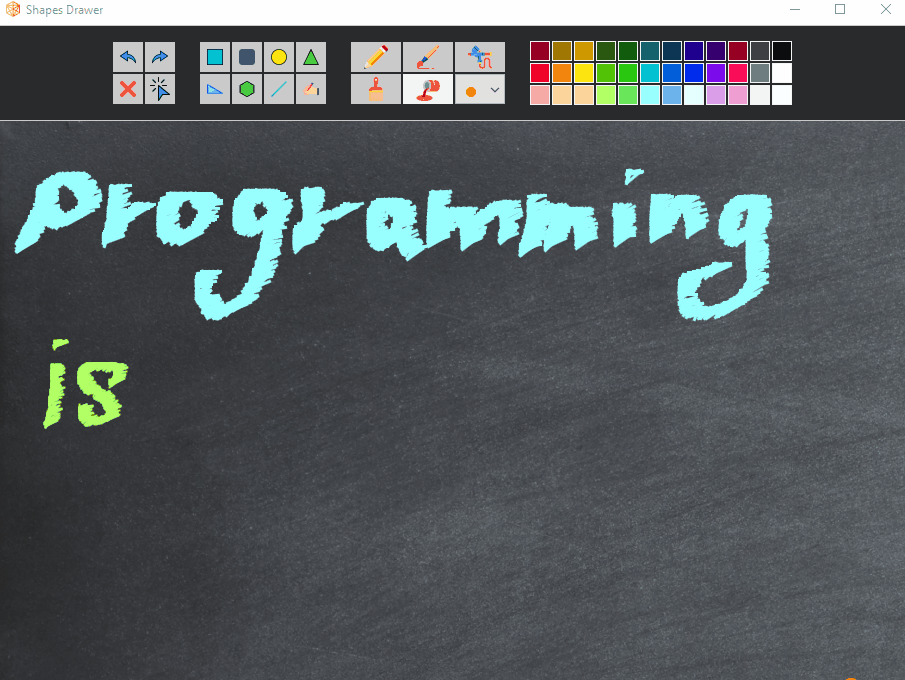 Shapes Drawer
Programming
is